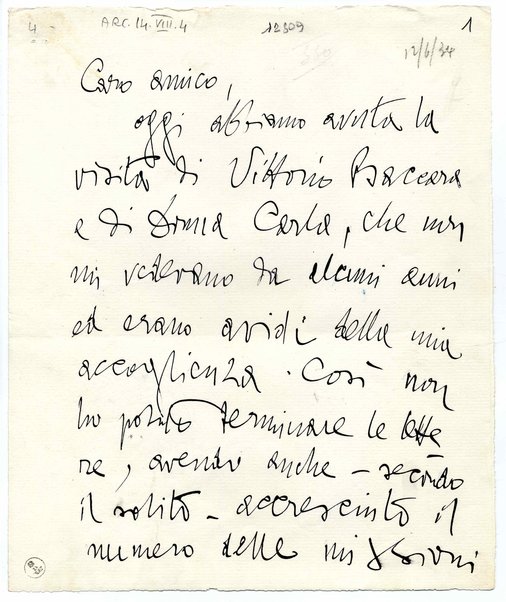 4 ARC. 14. VIII. 4 12309 1
12/6/34
Caro amico,
oggi abbiamo avuta la
visita di Vittorio Baccara
e di Donna Carla, che non
mi vedevano da alcuni anni
ed erano avidi della mia
accoglienza. Così non
ho potuto terminare le lette
re, avendo anche – secondo
il solito – accresciuto il
numero delle missioni